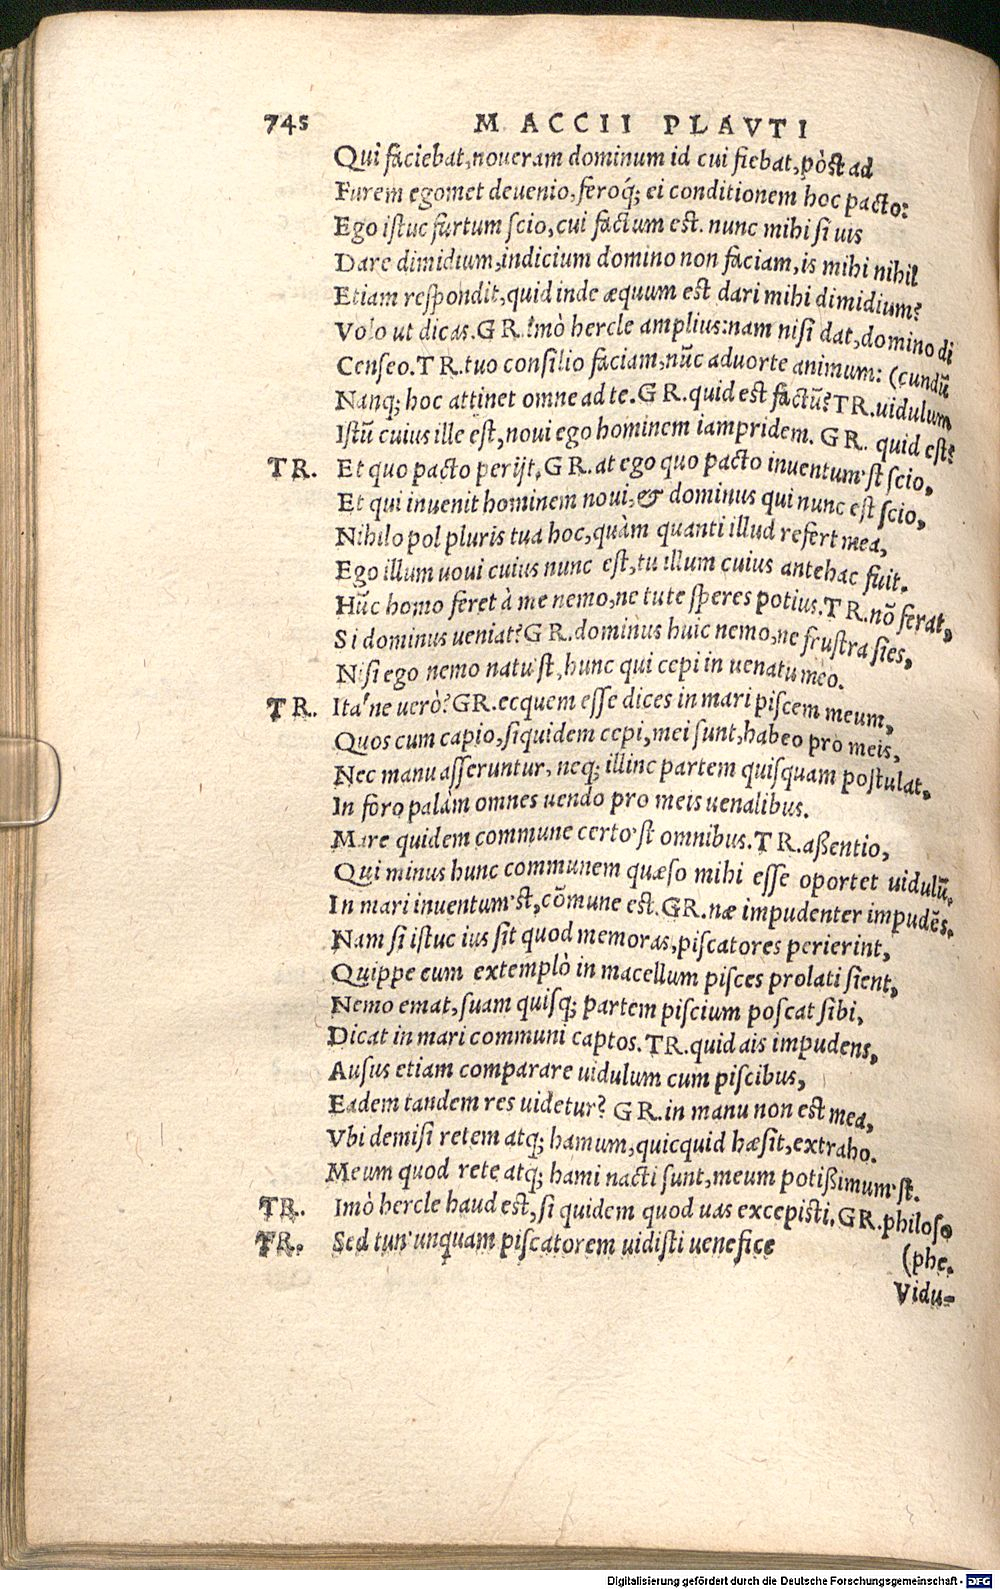 745 M ACCII PLAVTI
Qui faciebat, noueram dominum id cui fiebat, pòst ad
Furem egomet deuenio, feroq́; ei conditionem hoc pacto:
Ego iſtuc furtum ſcio, cui factum est. nunc mihi ſi uis
Dare dimidium, indicium domino non faciam, is mihi nihil
Etiam reſpondit, quid inde æquum est dari mihi dimidium?
Volo ut dicas. GR. Imò hercle amplius: nam niſi dat, domino di
Cenſeo. TR. tuo conſilio faciam, nūc aduorte animum: (cundū
Nanq; hoc attinet omne ad te. GR. quid est factū? TR. uidulum
Iſtū cuius ille eſt, noui ego hominem iampridem. GR. quid eſt?
TR. Et quo pacto perijt, GR. at ego quo pacto inuentum'st ſcio,
Et qui inuenit hominem noui, & dominus qui nunc eſt ſcio,
Nihilo pol pluris tua hoc, quàm quanti illud refert mea,
Ego illum uoui cuius nunc eſt, tu illum cuius antehac fuit.
Hūc homo feret à me nemo, ne tute ſperes potius. TR. nō ferat,
Si dominus ueniat? GR. dominus huic nemo, ne fruſtra ſies,
Niſi ego nemo natu'ſt, hunc qui cepi in uenatu meo.
TR. Ita'ne uerò? GR. ecquem eſſe dices in mari piſcem meum,
Quos cum capio, ſiquidem cepi, mei ſunt, habeo pro meis,
Nec manu aſſeruntur, neq; illinc partem quiſquam poſtulat,
In foro palàm omnes uendo pro meis uenalibus.
Mare quidem commune certo'ſt omnibus. TR. aßentio,
Qui minus hunc communem quæſo mihi eſſe oportet uidulū,
In mari inuentum'st, cōmune est. GR. næ impudenter impudēs.
Nam ſi iſtuc ius ſit quod memoras, piſcatores perierint,
Quippe cum extemplò in macellum piſces prolati ſient,
Nemo emat, ſuam quiſq; partem piſcium poſcat ſibi,
Dicat in mari communi captos. TR. quid ais impudens,
Auſus etiam comparare uidulum cum piſcibus,
Eadem tandem res uidetur? GR. in manu non est mea,
Vbi demiſi retem atq; hamum, quicquid hæſit, extraho.
Meum quod rete atq; hami nacti ſunt, meum potißimum'ſt.
TR. Imò hercle haud est, ſi quidem quod uas excepiſti, GR. philoſo
TR. Sed tun'unquam piſcatorem uidiſti uenefice (phe.
Vidu-
Digitalisierung gefördert durch die Deutsche Forschungsgemeinschaft - DFG